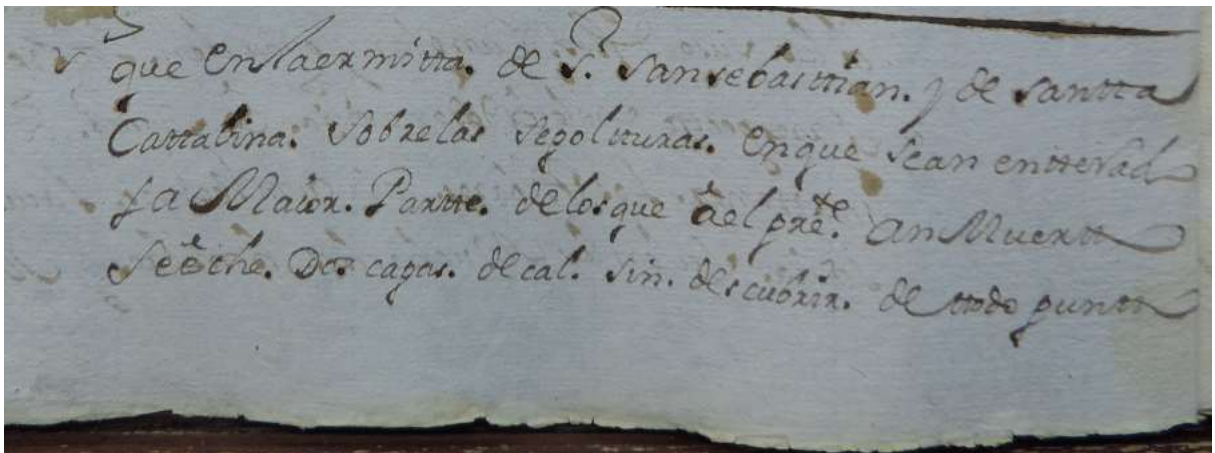 y que en la ermitta. de Sr. San sebasttian. y de santta
Cattalina. sobre las segoltturas. en que sean entterad
La Maior. Partte. de los que àel presste. an Muertt
se eche. Dos capas. de cal. sin. descubrir. de ttodo puntt